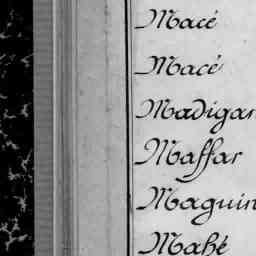 Macé
Macé
Madigan
Maffar
Maguin
Mahé